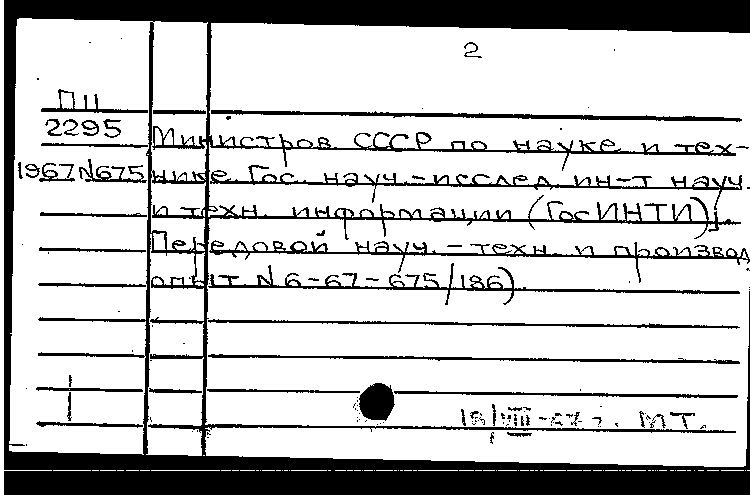 2
П11
2295
Министров СССР по науке и тех-
1967 N675 нике. Гос. науч.-исслед. ин-т науч.
и техн. информации (ГосИНТИ)].
Передовой науч.-техн. и производ.
опыт N 6-67-675/186)
18/VIII-67 г. МТ.